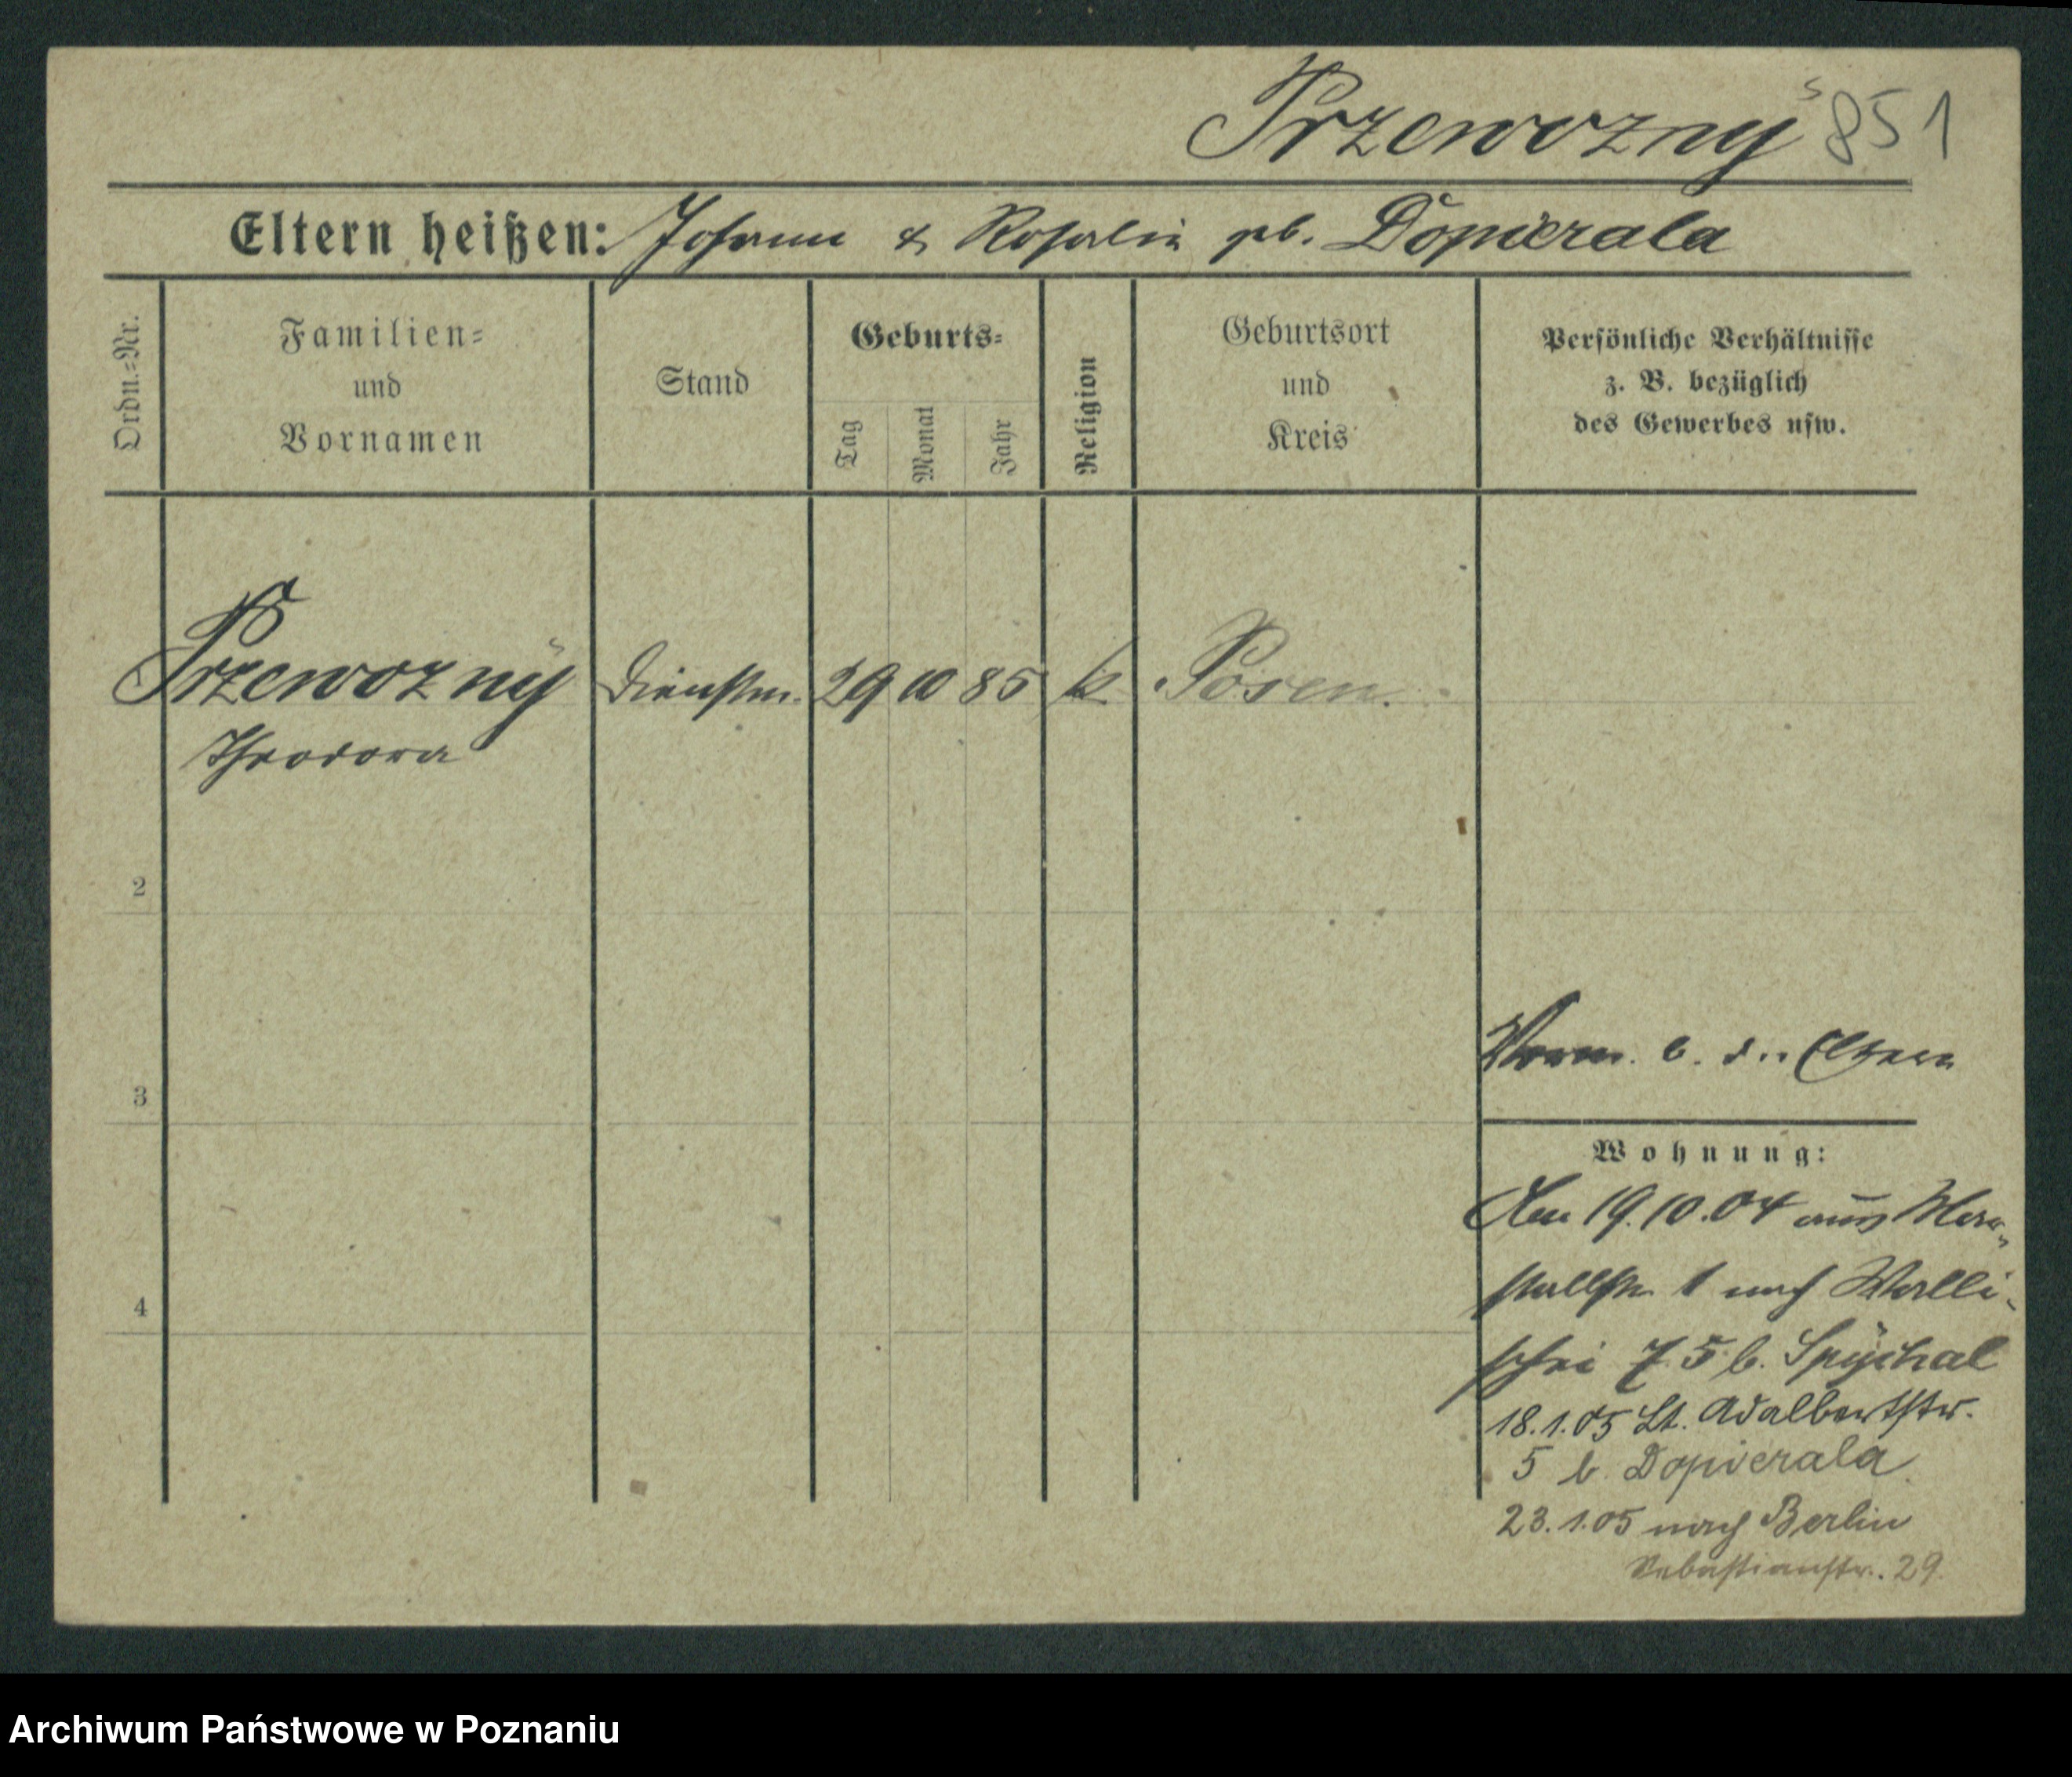 Przewozny 851
Eltern heißen: Johann & Rosalia geb. Dopierala
Ordn.-Nr.
Familien-
und
Vornamen
Stand
Geburts-
Tag
Monat
Jahr
Religion
Geburtsort
und
Kreis
Persönliche Verhältnisse
z. B. bezüglich
des Gewerbes usw.
Przewozny Dienstm. 29 10 85 k. Posen.
Theodora
2
3
4
b. d. Eltern
Wohnung:
Den 19.10.04 aus Mar-
stallstr. 1 nach Walli-
schei 75 b. Spychal
18.1.05 St. Adalbertstr.
5 b. Dopierala
23.1.05 nach Berlin
Sebastianstr. 29.
Archiwum Państwowe w Poznaniu